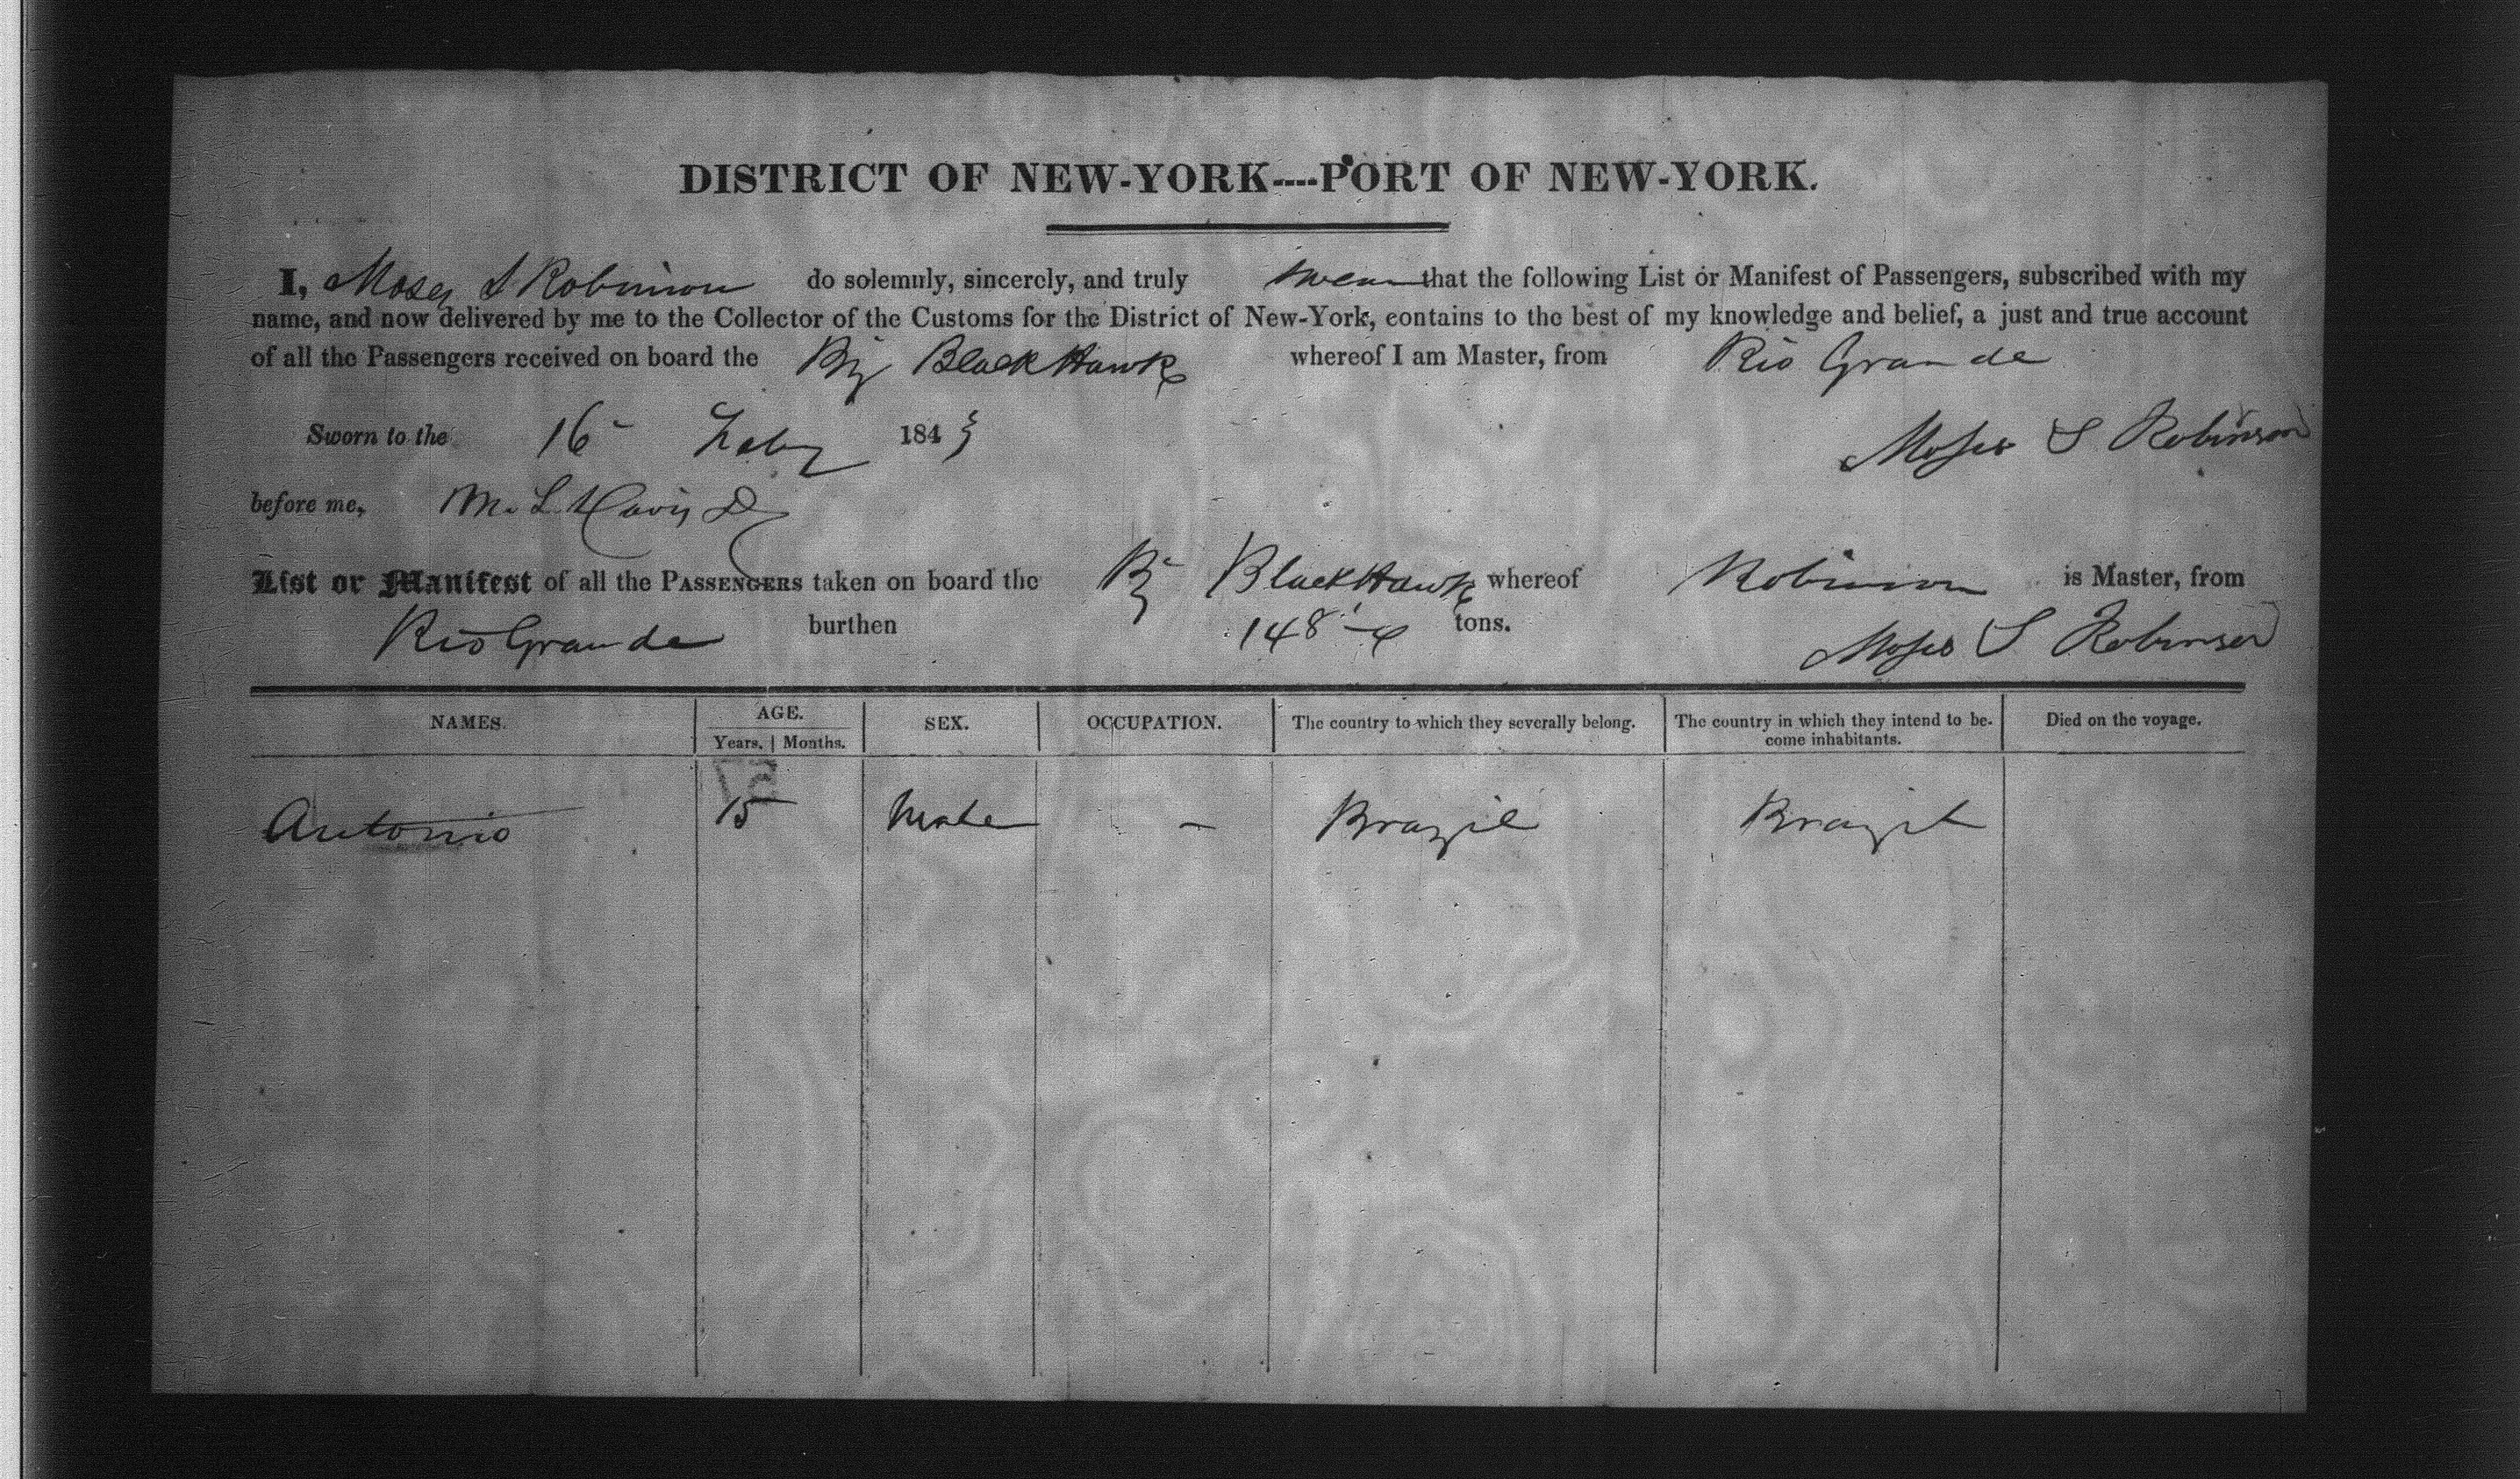 DISTRICT OF NEW-YORK----PORT OF NEW-YORK.
I, Moses S Robinson do solemnly, sincerely, and truly swear that the following List or Manifest of Passengers, subscribed with my
name, and now delivered by me to the Collector of the Customs for the District of New-York, contains to the best of my knowledge and belief, a just and true account
of all the Passengers received on board the Brig Black Hawk whereof I am Master, from Rio Grande
Sworn to the 16 Feby 1843 Moses S Robinson
before me, M. L. Davis
List or Manifest of all the PASSENGERS taken on board the Brig Black Hawk whereof Robinson is Master, from
Rio Grande burthen 148 tons. Moses S Robinson
NAMES. AGE. SEX. OCCUPATION. The country to which they severally belong. The country in which they intend to be- Died on the voyage.
Years. Months. come inhabitants.
Antonio 15 Male - Brazil Brazil